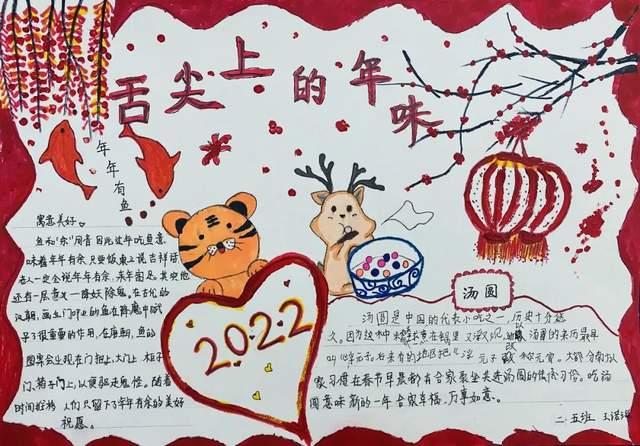 舌尖上的年味
年年有鱼
寓意美好。
鱼和"余"同音因此过年吃鱼意
味着年年有余只要饭桌上说吉祥话
老人一定会说年年有余、来年图足。其实他
还有一层意义一降妖除鬼。在古代的
汉朝,画上门中的鱼在辟魔中赋
予了很重要的作用,在唐朝,鱼的
图案会出现在门把上、大门上、柜子
门、箱子门上,以便驱走鬼怪。随着
时间推移 人们只留下了年年有余的美好
祝愿。
2022
汤圆
汤圆是中国的代表小吃之一,历史十分悠
久。因为这种糯米
在锅里又浮又沉
汤圆的来历最早
叫"浮元子"后来有的地区把"浮元子"改称元宵。大部分南方人
家习惯在春节早晨都有合家聚坐共进汤圆的传统习俗。吃汤
圆意味新的一年合家幸福、万事如意。
二.五班 王诺